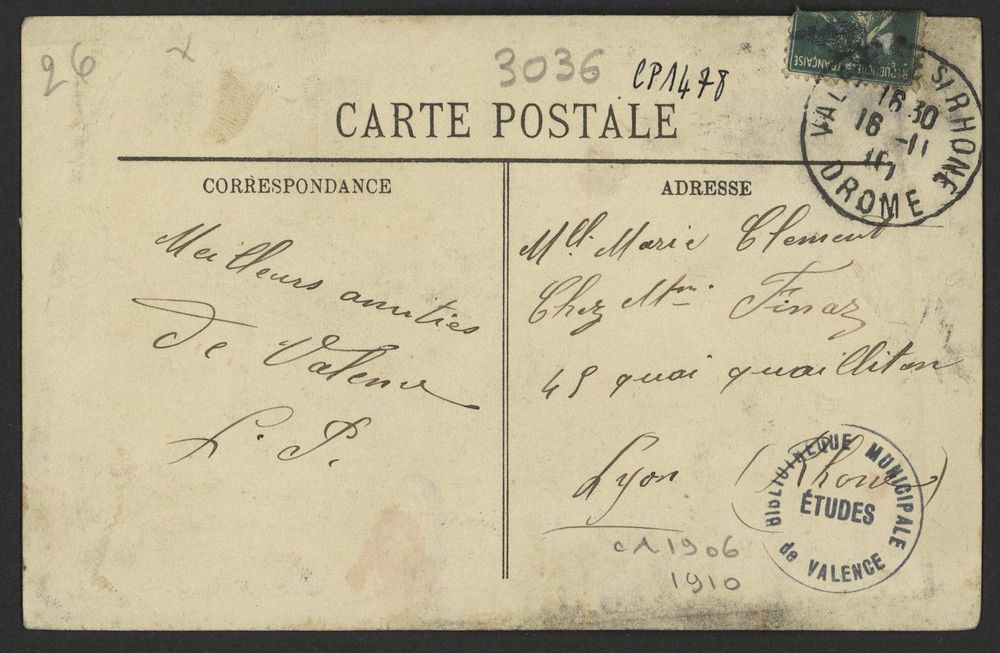 26
x
3036
CP1478
CARTE POSTALE
RÉPUBLIQUE FRANÇAISE
VALENCE S/ RHONE
16 30
16 -11
DROME
CORRESPONDANCE
Meilleurs amities
De Valence
L. P.
ADRESSE
Mlle Marie Clement
Chez Mme Finaz
45 quai quailliton
Lyon (Rhone)
BIBLIOTHEQUE MUNICIPALE
ÉTUDES
de VALENCE
1906
1910